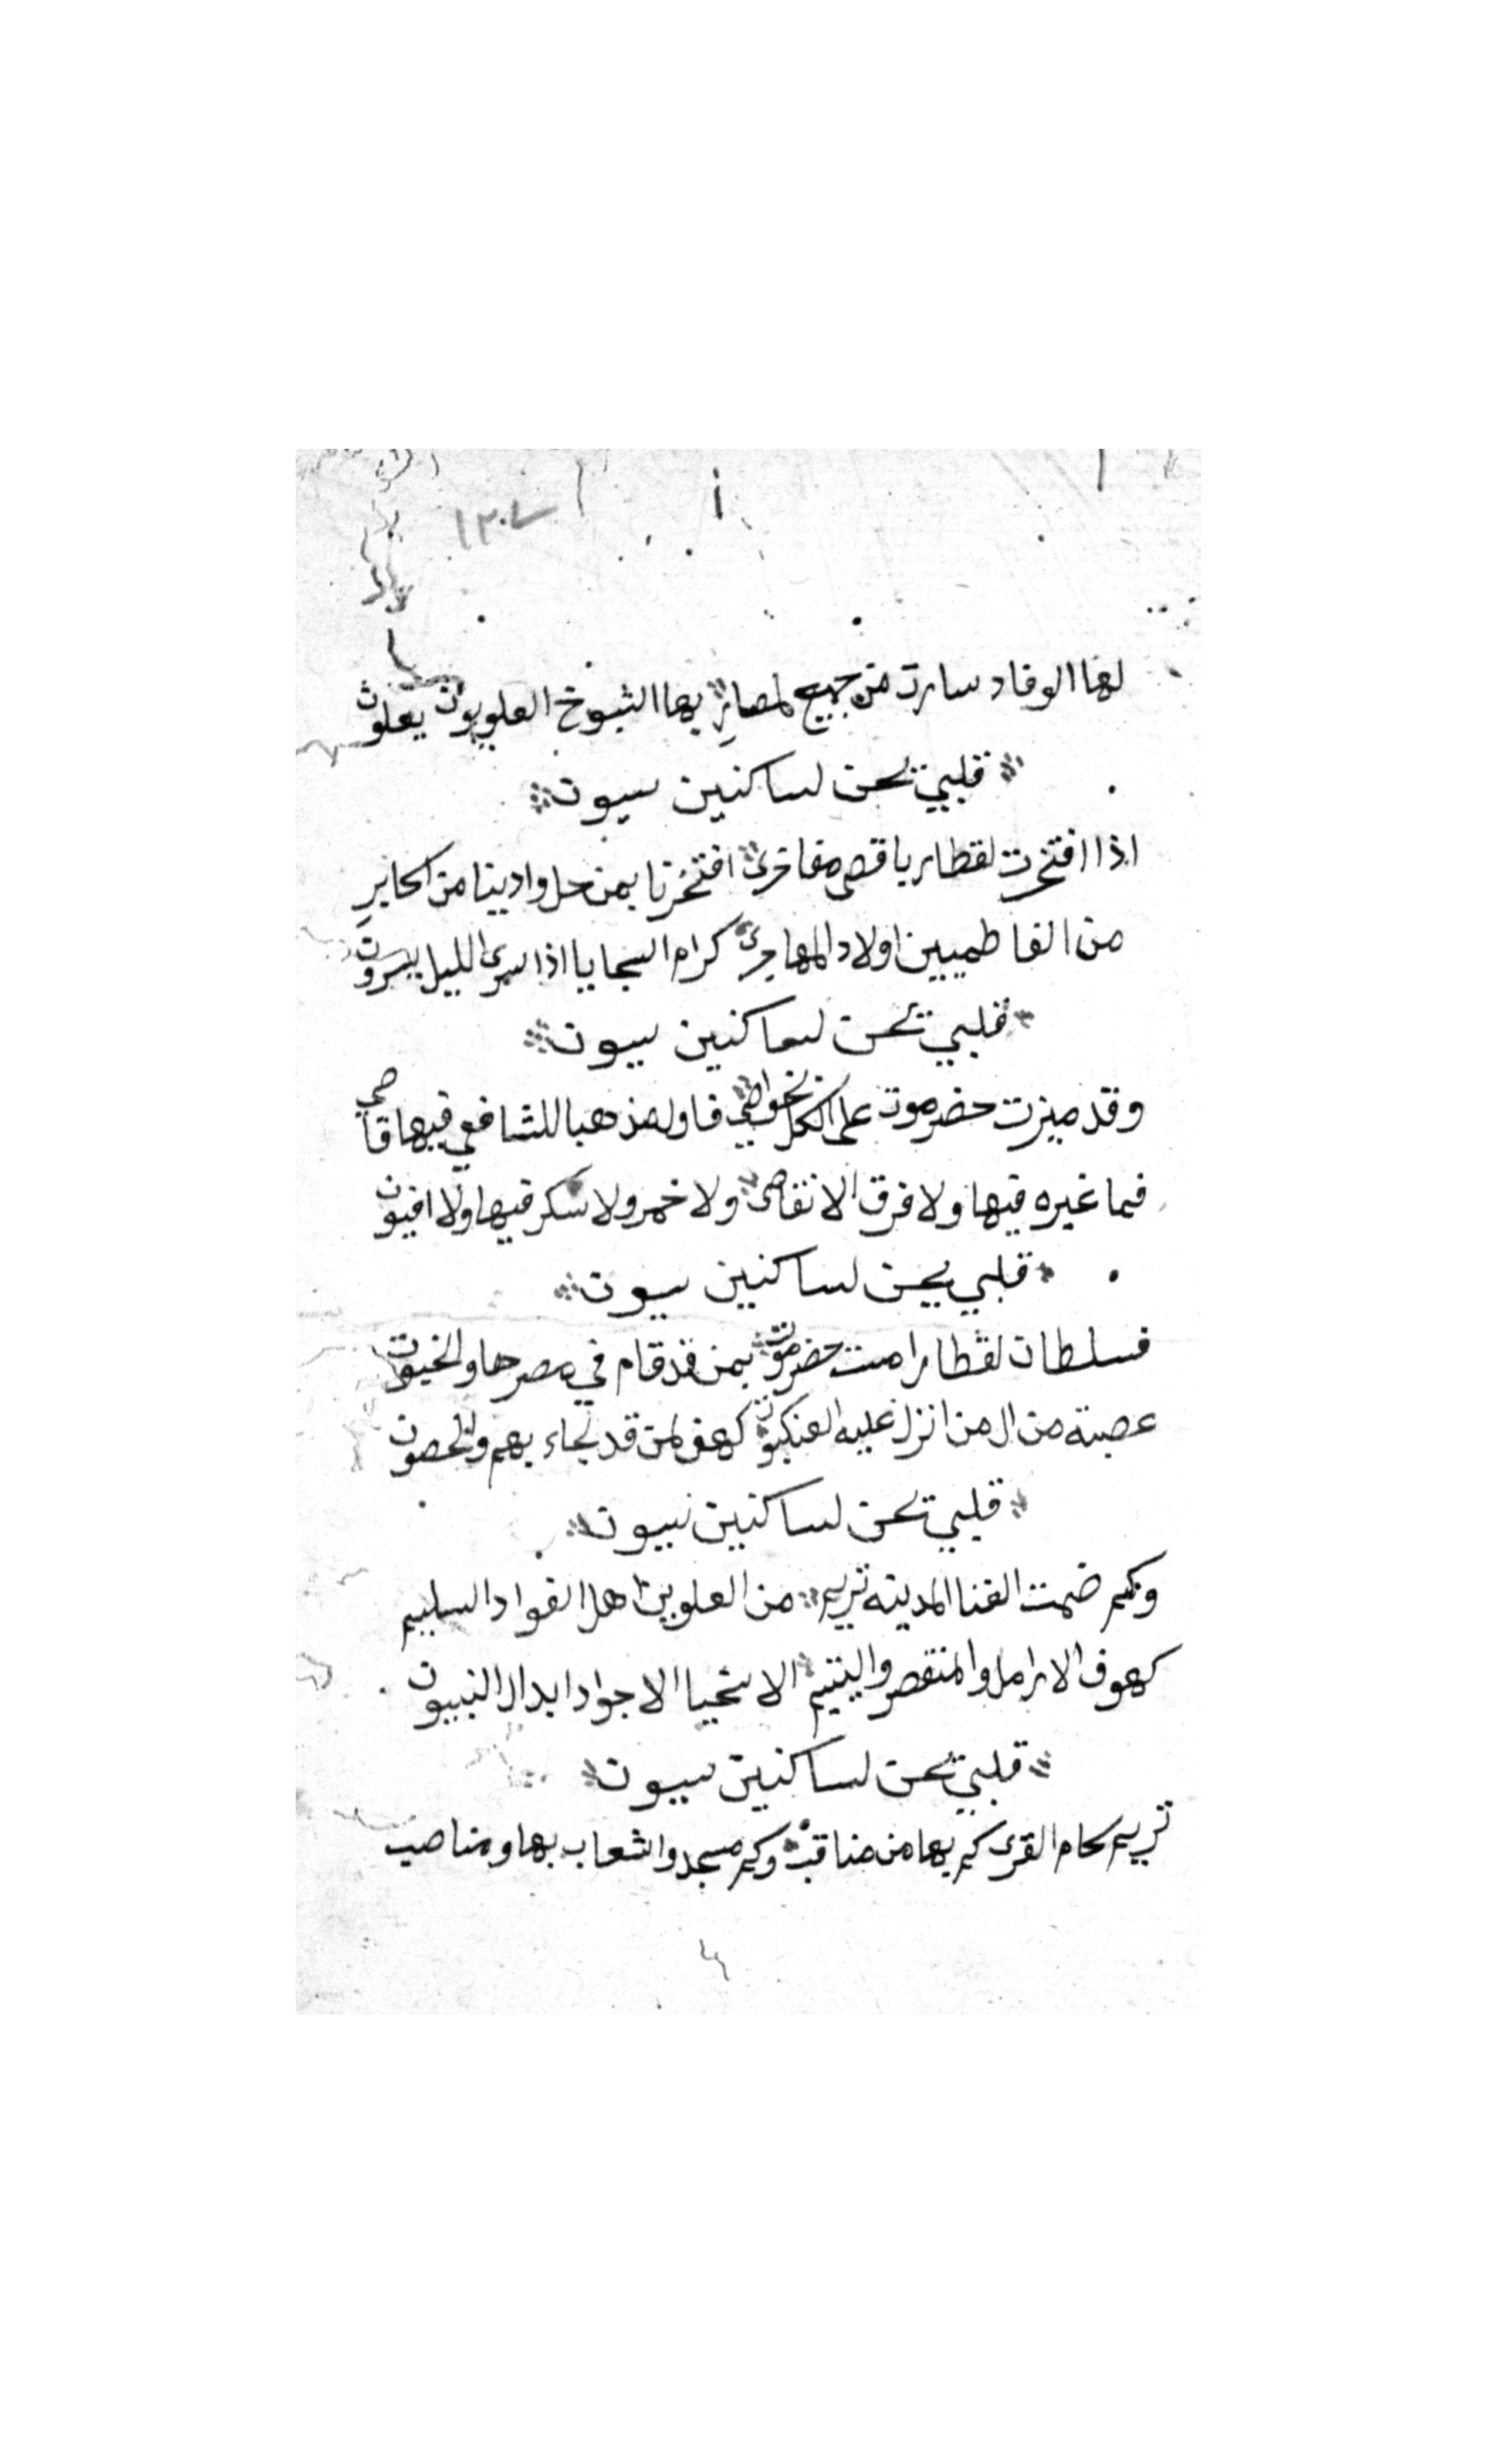 ١٢٠٧
لها الوفاد سارت من جميع لمصاير بها الشيوخ العلويون يعلون
قلبي يحن لساكنين سيون
اذا افتخرت لقطار باقصى مفاخرى افتخرنا بمن حل وادينا من اكابر
من الفاطميين اولاد المهاجرى كرام السجايا اذا سرى الليل يسرون
قلبي يحن لساكنين سيون
وقد ميزت حضرموت على الكل فاول مذهبا للشافعي فيها قاصي
فما غيره فيها ولا فرق الانقاصى ولا خمر ولا سكر فيها ولا افيون
قلبي يحن لساكنين سيون
فسلطان لقطار امست حضرموت بمن قد قام في مصرها والخيوت
عصبته من ال من انزل عليه العنكبوت كهف لمن قد لجاء بهم والحصون
قلبي يحن لساكنين سيون
وكم ضمت الغنا المدينه تريم من العلويين اهل الفواد السليم
كهوف الارامل والمنتقصر واليتيم الاسخيا الاجواد ابدال النبيون
قلبي يحن لساكنين سيون
تريم كام القرى كم بها من مناقب وكم مسجد واشعاب بها ومناصب